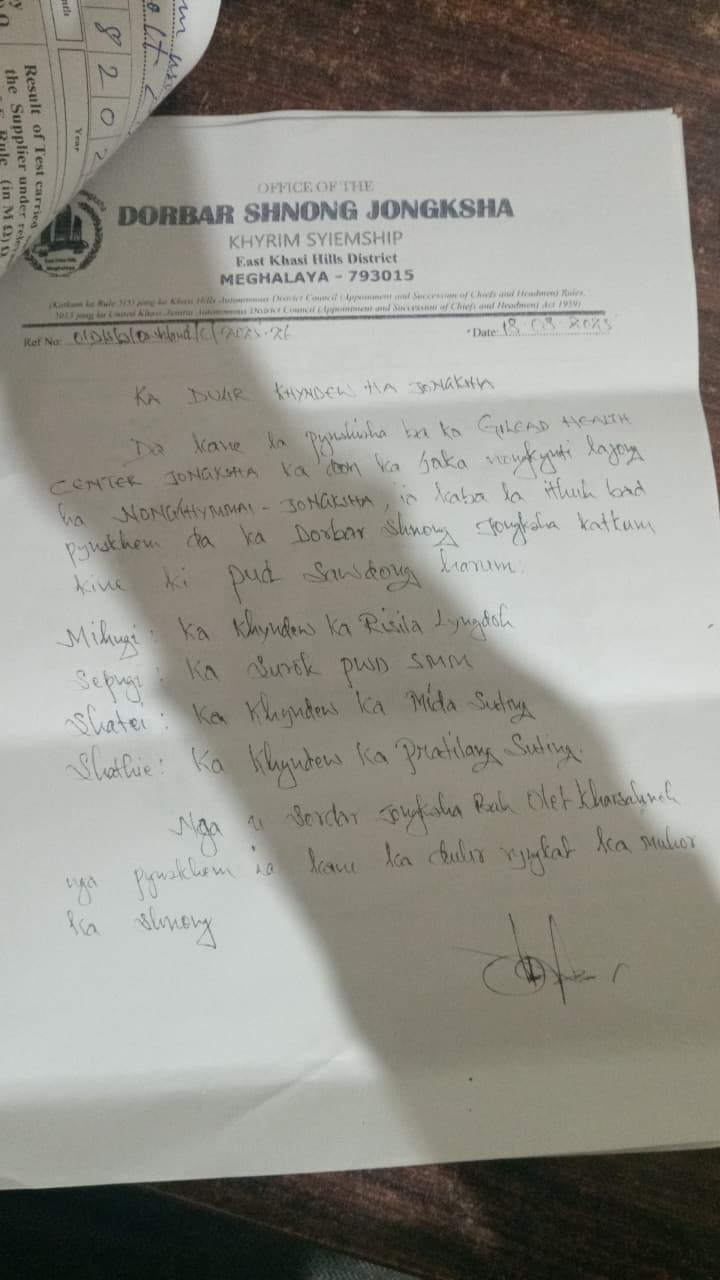 8 2 0 2
Year
Result of Test carried
the Supplier under
Rule (in M Ω)
OFFICE OF THE
DORBAR SHNONG JONGKSHA
KHYRIM SYIEMSHIP
East Khasi Hills District
MEGHALAYA - 793015
(Katkum ka Rule 3(5) jong ka Khasi Hills Autonomous District Council (Appointment and Succession of Chiefs and Headmen) Rules,
jong ka United Khasi Jaintia Autonomous District Council (Appointment and Succession of Chiefs and Headmen) Act 1959)
Ref No: 2025-26 Date: 18.08.2025
KA DULIR KHYNDEW HA JONGKSHA
Da kane la pynshisha ba ka GILEAD HEALTH
CENTER JONGKSHA ka don ka jaka nongkynti lajong
ha NONGKHYMMAI - JONGKSHA, ia kaba la ithuh bad
pynskhem da ka Dorbar Shnong Jongksha katkum
kine ki pud sawdong harum:
Mihngi: Ka Khyndew Ka Risila Lyngdoh
Sepngi: Ka Surok PWD SMM
Shatei: Ka Khyndew Ka Mida Suting
Shathie: Ka Khyndew Ka Pratilang Suting.
Nga u Sordar Jongksha Bah Olet
nga pynskhem ia kane ka dulir ryngkat ka mohor
ka shnong